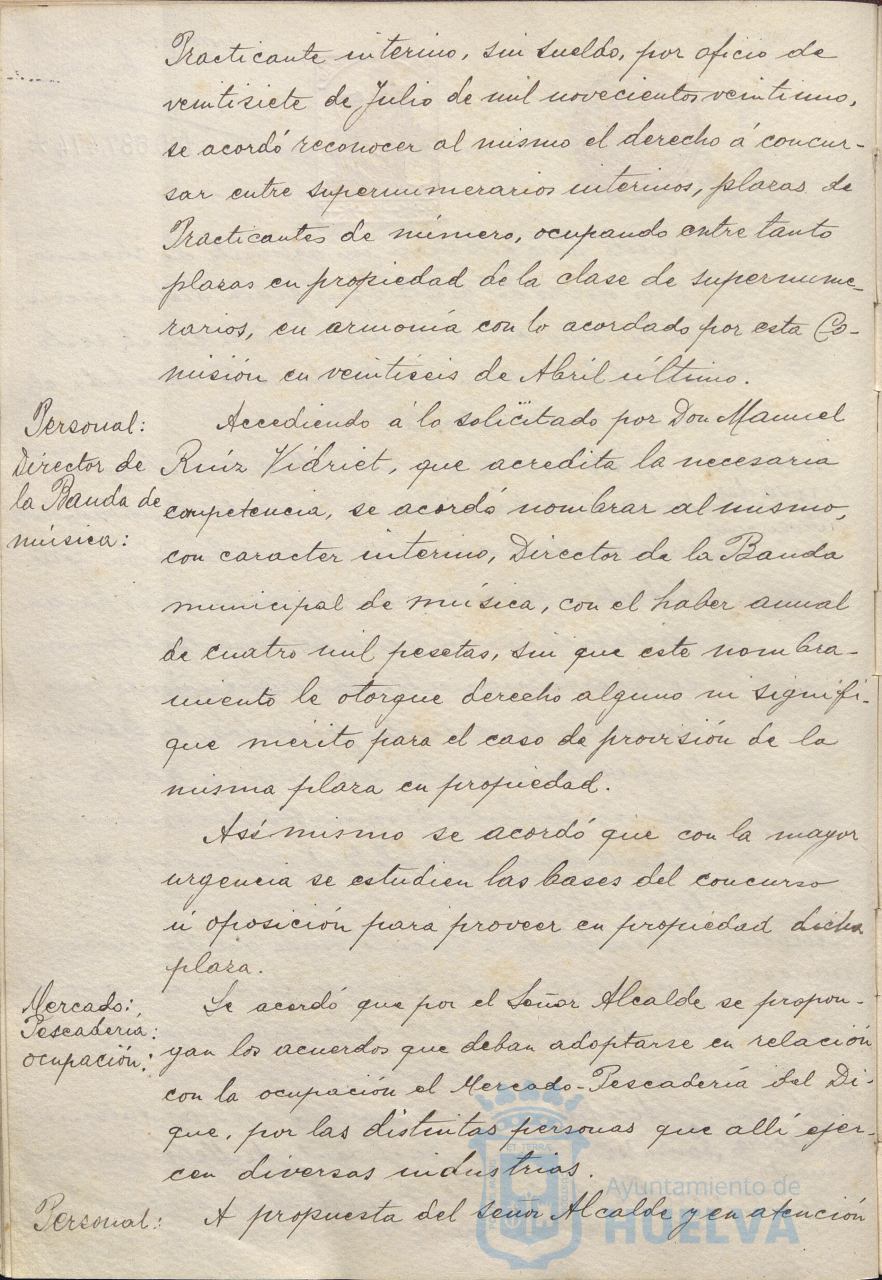 Practicante interino, sin sueldo, por oficio de
veintisiete de Julio de mil novecientos veintiuno,
se acordó reconocer al mismo el derecho á concur-
sar entre supernumerarios interinos, plazas de
Practicantes de número, ocupando entre tanto
plazas en propiedad de la clase de supernume-
rarios, en armonía con lo acordado por esta Co-
misión en veintiseis de Abril último.
Personal:
Director de
la Banda de
música:
Accediendo á lo solicitado por Don Manuel
Ruíz Vidriet, que acredita la necesaria
competencia, se acordó nombrar al mismo,
con caracter interino, Director de la Banda
municipal de música, con el haber anual
de cuatro mil pesetas, sin que este nombra-
miento le otorgue derecho alguno ni signifi-
que mérito para el caso de provisión de la
misma plaza en propiedad.
Asímismo se acordó que con la mayor
urgencia se estudien las bases del concurso
ú oposición para proveer en propiedad dicha
plaza.
Mercado:
Pescadería:
ocupación:
Se acordó que por el Señor Alcalde se propon-
gan los acuerdos que deban adoptarse en relación
con la ocupación el Mercado-Pescadería del Di-
que, por las distintas personas que allí ejer-
cen diversas industrias.
Personal:
A propuesta del señor Alcalde y en atención
Ayuntamiento de
HUELVA